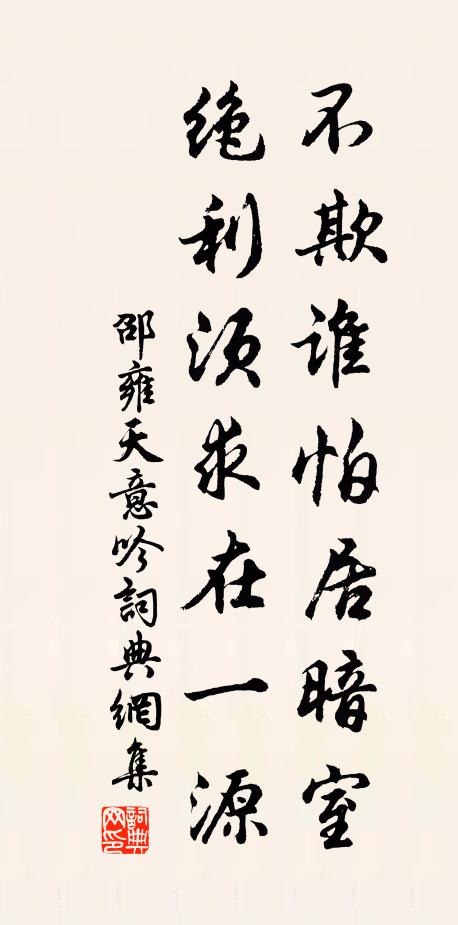 不欺誰怕居暗室
絕利須求在一源
邵雍天意吟詞典網集
詞典網印